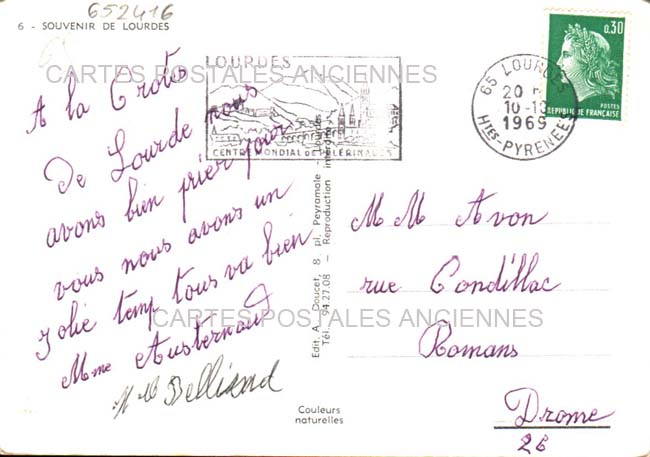 652416
6 - SOUVENIR DE LOURDES
CARTES POSTALES ANCIENNES
LOURDES
CENTRE MONDIAL DE PÈLERINAGES
65 LOURDES
20 H
10-10
1969
Htes-PYRENEES
0,30
POSTES
REPUBLIQUE FRANÇAISE
A la Grote
De Lourde nous
avons bien prier pour
vous nous avons un
Jolie temp tous va bien
Mme Austernaud
Mlle Belliard
Edit. A. Doucet, 8 pl. Peyramale - Lourdes
Tél. 94.27.08 — Reproduction interdite
Couleurs
naturelles
M M Avon
rue Condillac
Romans
Drome
26
CARTES POSTALES ANCIENNES